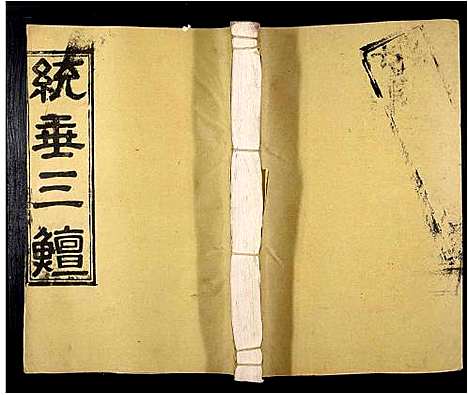 統垂三鱣